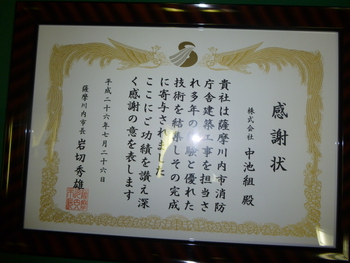 感謝状
株式会社 中池組 殿
貴社は薩摩川内市消防
庁舎建築工事を担当さ
れ多年の経験と優れた
技術を結集しその完成
に寄与されました
ここにご功績を讃え深
く感謝の意を表します
平成二十六年七月二十六日
薩摩川内市長 岩切秀雄